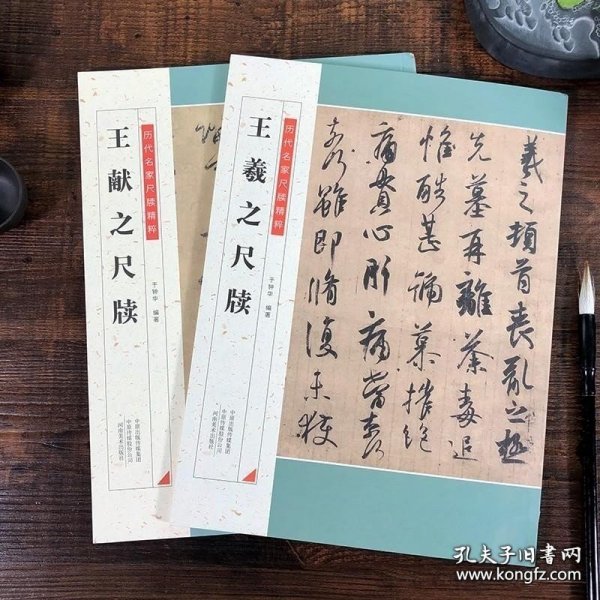 王献之尺牍
历代名家尺牍精粹
于钟华 编著
中原出版传媒集团
中原传媒股份公司
河南美术出版社
王羲之尺牍
历代名家尺牍精粹
于钟华 编著
中原出版传媒集团
中原传媒股份公司
河南美术出版社
羲之顿首丧乱之极
先墓再離荼毒追
惟酷甚號慕摧絶
痛貫心肝痛當奈
奈何雖即脩復未獲
孔夫子旧书网
www.kongfz.com